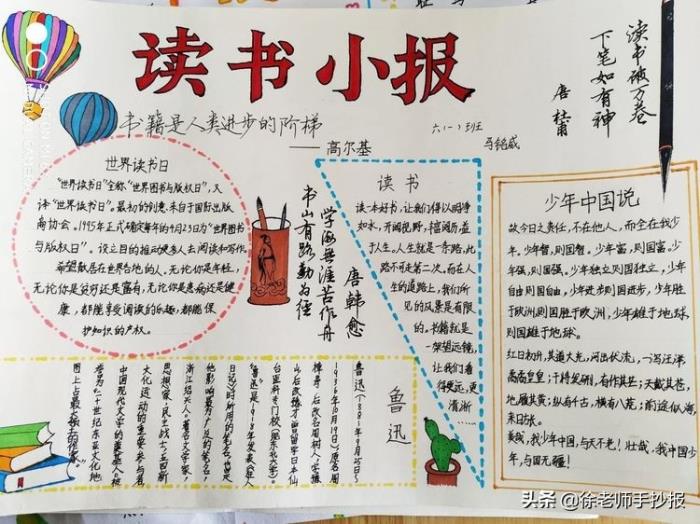 读书小报
读书破万卷
下笔如有神
唐 杜甫
书籍是人类进步的阶梯
——高尔基
六(一)班
马铭威
世界读书日
“世界读书日”全称“世界图书与版权日”，又
译“世界图书日”。最初的创意来自于国际出版
商协会。1995年正式确定每年的4月23日为“世界图书
与版权日”。设立目的推动更多人去阅读和写作。
希望散居在世界各地的人。无论你是年轻，
无论你是贫穷还是富有，无论你是患病还是健
康，都能享受阅读的乐趣，都能保
护知识的产权。
书山有路勤为径
学海无涯苦作舟
唐 韩愈
读书
读一本好书，让我们得以明净
如水，开阔视野，
于人生。人生就是一条路，此
路不可走第二次。而在人
生的道路上，我们所
见的风景是有限
的。书籍就是
一架望远镜，
让我们看
得更远，更
清淅……
少年中国说
故今日之责任，不在他人，而全在我少
年。少年智，则国智。少年富，则国富。少
年强，则国强。少年独立则国独立，少年
自由则国自由，少年进步则国进步，少年胜
于欧洲则国胜于欧洲，少年雄于地球，
则国雄于地球。
红日初升，其道大光，河出伏流，一泻汪洋
矞矞皇皇；干将发硎，有作其芒；天戴其苍，
地履其黄；纵有千古，横有八荒；前途似海，
来日方长。
美哉，我少年中国，与天不老！壮哉，我中国少
年，与国无疆！
鲁迅
鲁迅(1881年9月25日—
1936年10月19日)原名周
樟寿，后改名周树人，字豫
山，后改豫才，留学日本仙
台医科专门校
“鲁迅”是1918年发表《狂人
日记》时所用的笔名，也是
他影响最为广泛的笔名，
浙江绍兴人。著名文学家，
思想家，民主战士，五四新
文化运动的重要参与者，
中国现代文学的奠基人，被
誉为“二十世纪东亚文化地
图上占最大领土的作家”。
头条 @徐老师手抄报